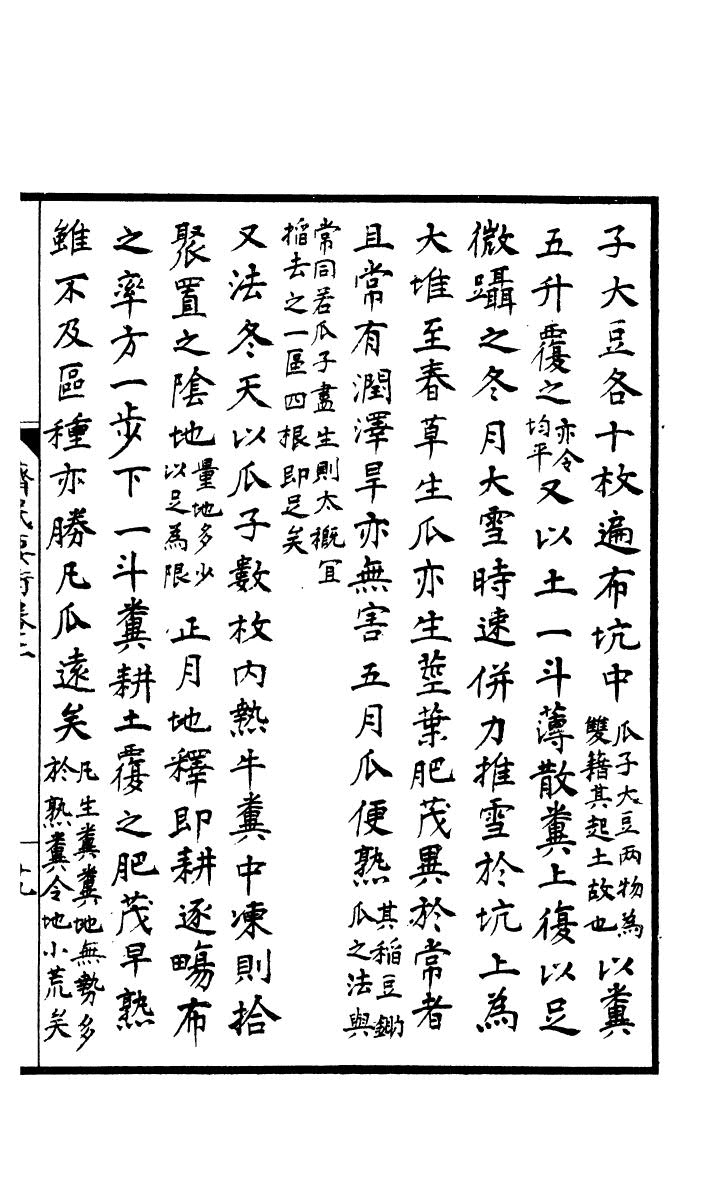 子大豆各十枚遍布坑中瓜子大豆两物為雙藉其起土故也以糞
五升覆之亦令均平又以土一斗薄散糞上復以足
微躡之冬月大雪時速併力推雪於坑上為
大堆至春草生瓜亦生莖葉肥茂異於常者
且常有潤澤旱亦無害五月瓜便熟其稻豆鋤瓜之法與
常同若瓜子盡生則太概宜稻去之一區四根即足矣
又法冬天以瓜子數枚内熱牛糞中凍則拾
聚置之陰地量地多少以足為限正月地釋即耕逐暢布
之率方一步下一斗糞耕土覆之肥茂早熟
雖不及區種亦勝凡瓜遠矣凡生糞糞地無勢多於熟糞令地小荒矣
齊民要術卷二
十九